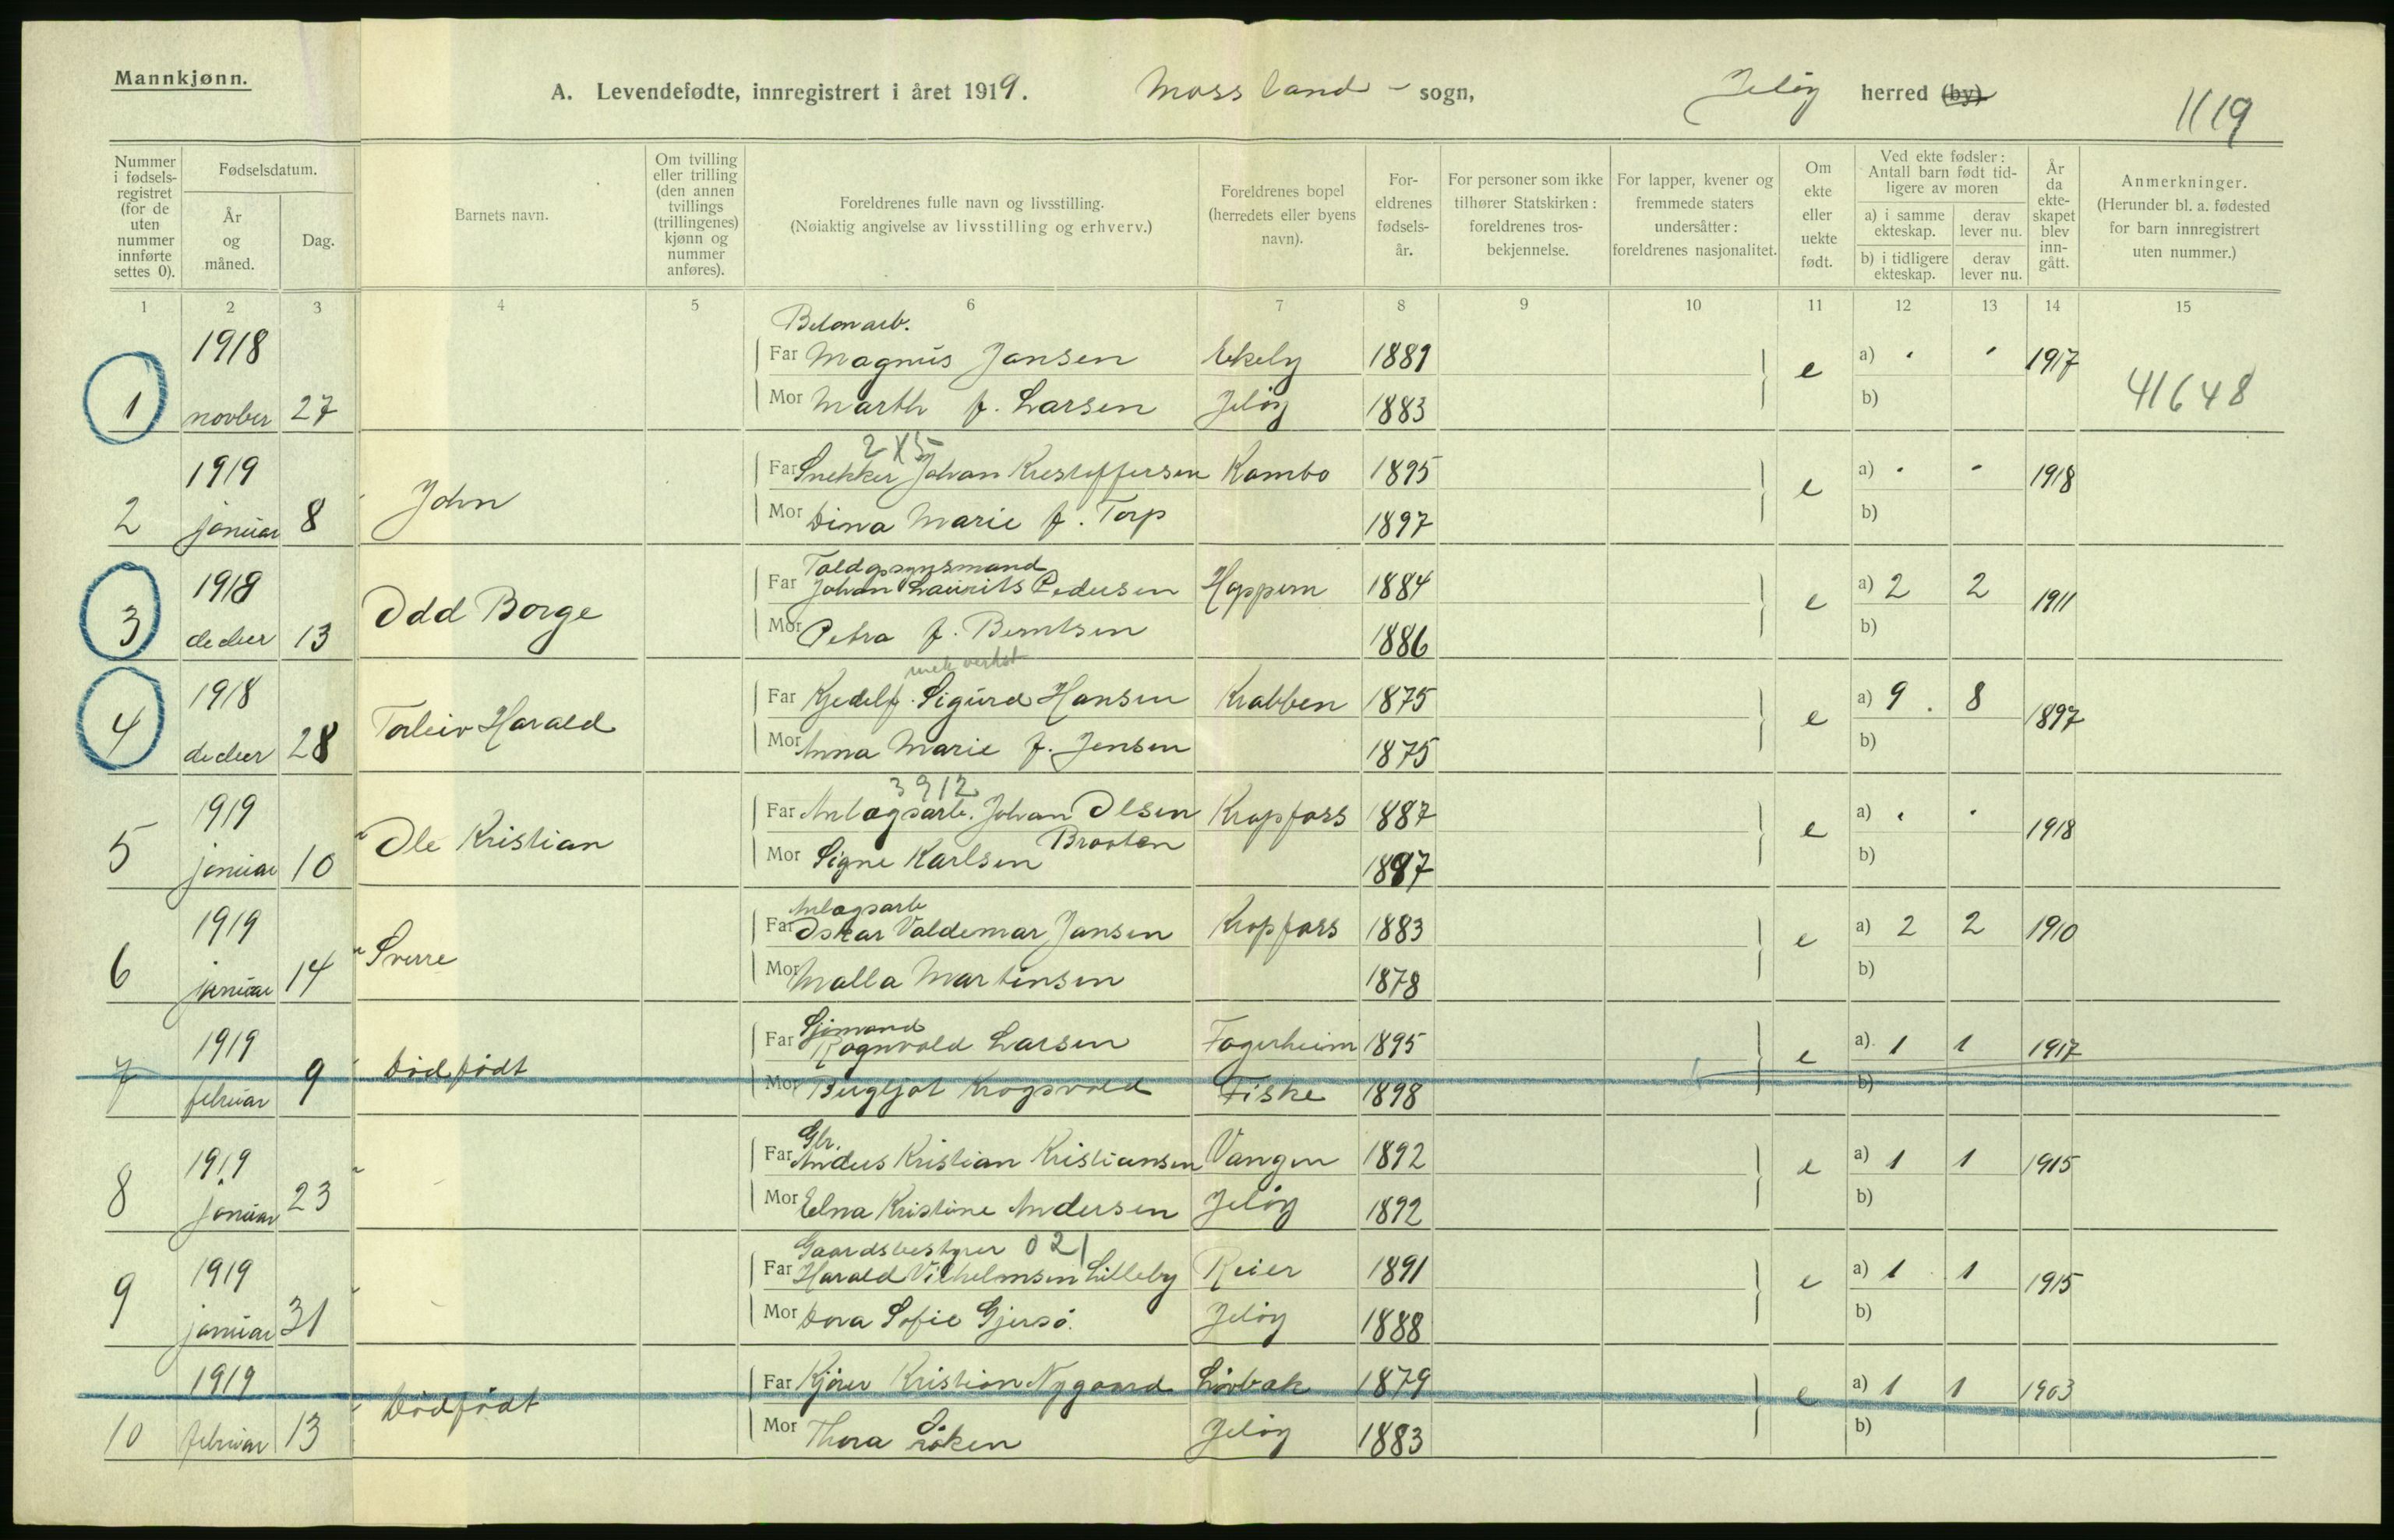 Mannkjønn.
A. Levendefødte, innregistrert i året 1919. Moss land - sogn, Jeløy herred (by)
1119
Nummer i fødsels- registret (for de uten nummer innførte settes 0).
Fødselsdatum.
År og måned.
Dag.
Barnets navn.
Om tvilling eller trilling (den annen tvillings (trillingenes) kjønn og nummer anføres).
Foreldrenes fulle navn og livsstilling.
(Nøiaktig angivelse av livsstilling og erhverv.)
Foreldrenes bopel (herredets eller byens navn).
For- eldrenes fødsels- år.
For personer som ikke tilhører Statskirken: foreldrenes tros- bekjennelse.
For lapper, kvener og fremmede staters undersåtter: foreldrenes nasjonalitet.
Om ekte eller uekte født.
Ved ekte fødsler: Antall barn født tid- ligere av moren
a) i samme ekteskap. derav lever nu.
b) i tidligere ekteskap. derav lever nu.
År da ekte- skapet blev inn- gått.
Anmerkninger.
(Herunder bl. a. fødested for barn innregistrert uten nummer.)
1 2 3 4 5 6 7 8 9 10 11 12 13 14 15
Betonarb.
1918 Far Magnus Jansen Ekely 1881 e a) 1917
1 novber 27 Mor Marth f. Larsen Jeløy 1883 b) 41648
2X5
1919 Far Snekker Johan Kristoffersen Kambo 1895 e a) 1918
2 januar 8 John Mor Dina Marie f. Torp 1897 b)
Toldopsynsmand
1918 Far Johan Laurits Pedersen Hoppern 1884 e a) 2 2 1911
3 decber 13 Odd Borge Mor Petra f. Berntsen 1886 b)
mek verkst
1918 Far Kjedelf. Sigurd Hansen Krabben 1875 e a) 9. 8 1897
4 decber 28 Torleiv Harald Mor Anna Marie f. Jensen 1875 b)
3912
1919 Far Anlægsarb. Johan Olsen Krapfoss 1887 e a) 1918
Braaten
5 januar 10 Ole Kristian Mor Signe Karlsen 1897 b)
Anlægsarb
1919 Far Oskar Valdemar Jansen Kropfoss 1883 e a) 2 2 1910
6 januar 14 Sverre Mor Malla Martinsen 1878 b)
Sjømand
1919 Far Ragnvald Larsen Fagerheim 1895 e a) 1 1 1917
7 februar 9 Dødfødt Mor Bergljot Krogsvold Fiske 1898 b)
Gbr.
1919 Far Anders Kristian Kristiansen Vangen 1892 e a) 1 1 1915
8 januar 23 Mor Elna Kristine Andersen Jeløy 1892 b)
Gaardsbestyrer 021
1919 Far Harald Vilhelmsen Lilleby Reier 1891 e a) 1 1 1915
9 januar 31 Mor Dora Sofie Gjersø. Jeløy 1888 b)
1919 Far Kjører Kristian Nygaard Løvbak 1879 e a) 1 1 1903
10 februar 13 Dødfødt Mor Thora Jeløy 1883 b)